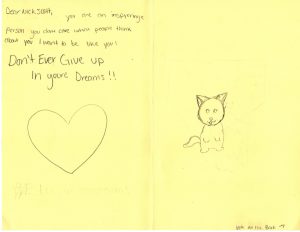 Dear Nick Scott,
you are an
person you dont care what people think
about you I want to be like you!
Don't Ever Give up
In youre Dreams!!